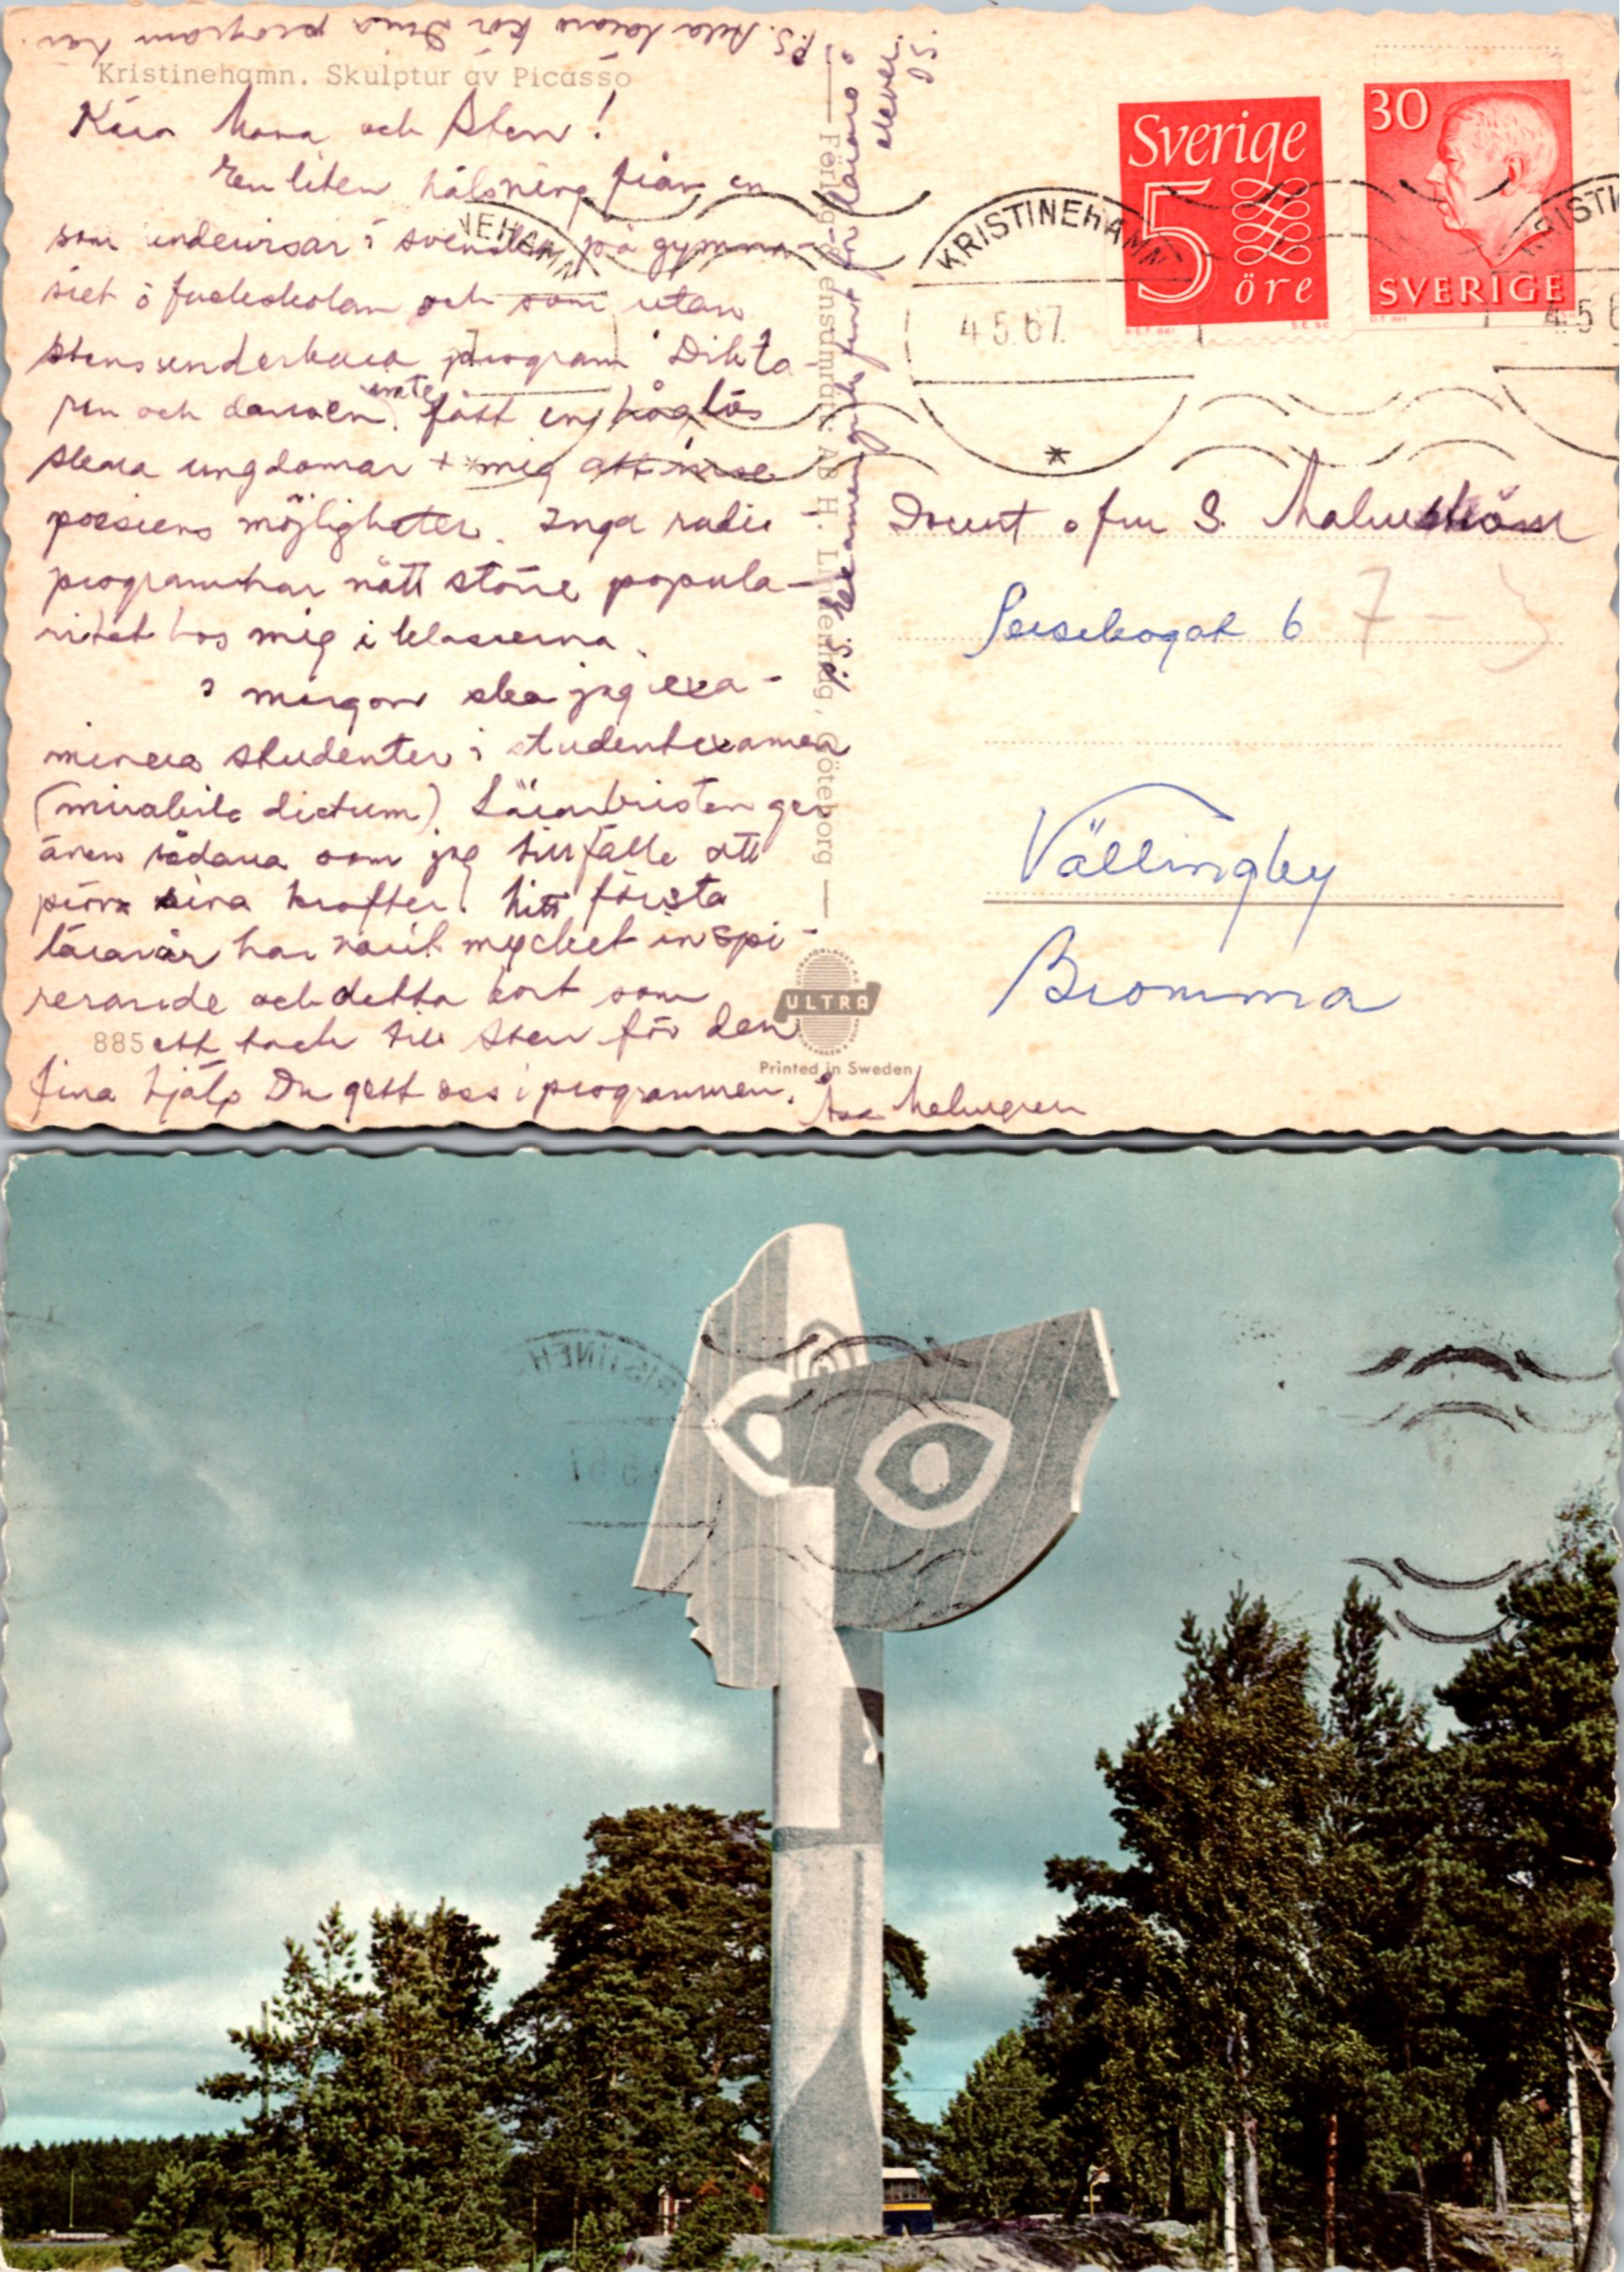 P.S. Alla lärare kör Dina program här.
Kristinehamn. Skulptur av Picasso
Kära Mona och Sten!
En liten hälsning från en
som undervisar i svenska på gymna-
siet o fackskolan och som utan
Stens underbara program "Dikta-
ren och dansen" inte fått en håglös
skara ungdomar + mig att inse
poesiens möjligheter. Inga radio-
program har nått större popula-
ritet hos mig i klasserna.
I morgon ska jag exa-
minera studenter i studentexamen
(mirabile dictum) Lärarbristen ger
även sådana som jag tillfälle att
pröva sina krafter. Mitt första
lärarår har varit mycket inspi-
rerande och detta kort som
885 ett tack till Sten för den
fina hjälp Du gett oss i programmen.
Malmgren
P.S. Examen gick fint för lärare o
elever. DS
Förlag ensamrätt: AB H. Göteborg
ULTRA
Printed in Sweden
Sverige
5
öre
30
SVERIGE
KRISTINEHAMN
4.5.67.
Docent o fru S. Malmström
6 7-3
Vällingby
Bromma